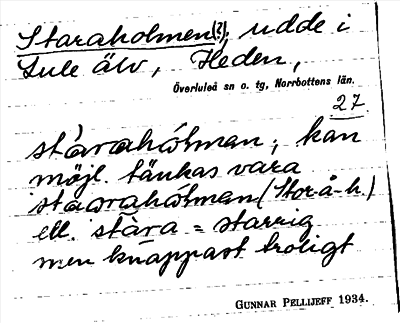 Staraholmen(?), udde i
Lule älv, Heden,
Överluleå sn o. tg, Norrbottens län.
27.
stàrahólman, kan
möjl. tänkas vara
staorahólman (Storå-h.)
ell. stàra = starrig
men knappast troligt
GUNNAR PELLIJEFF 1934.